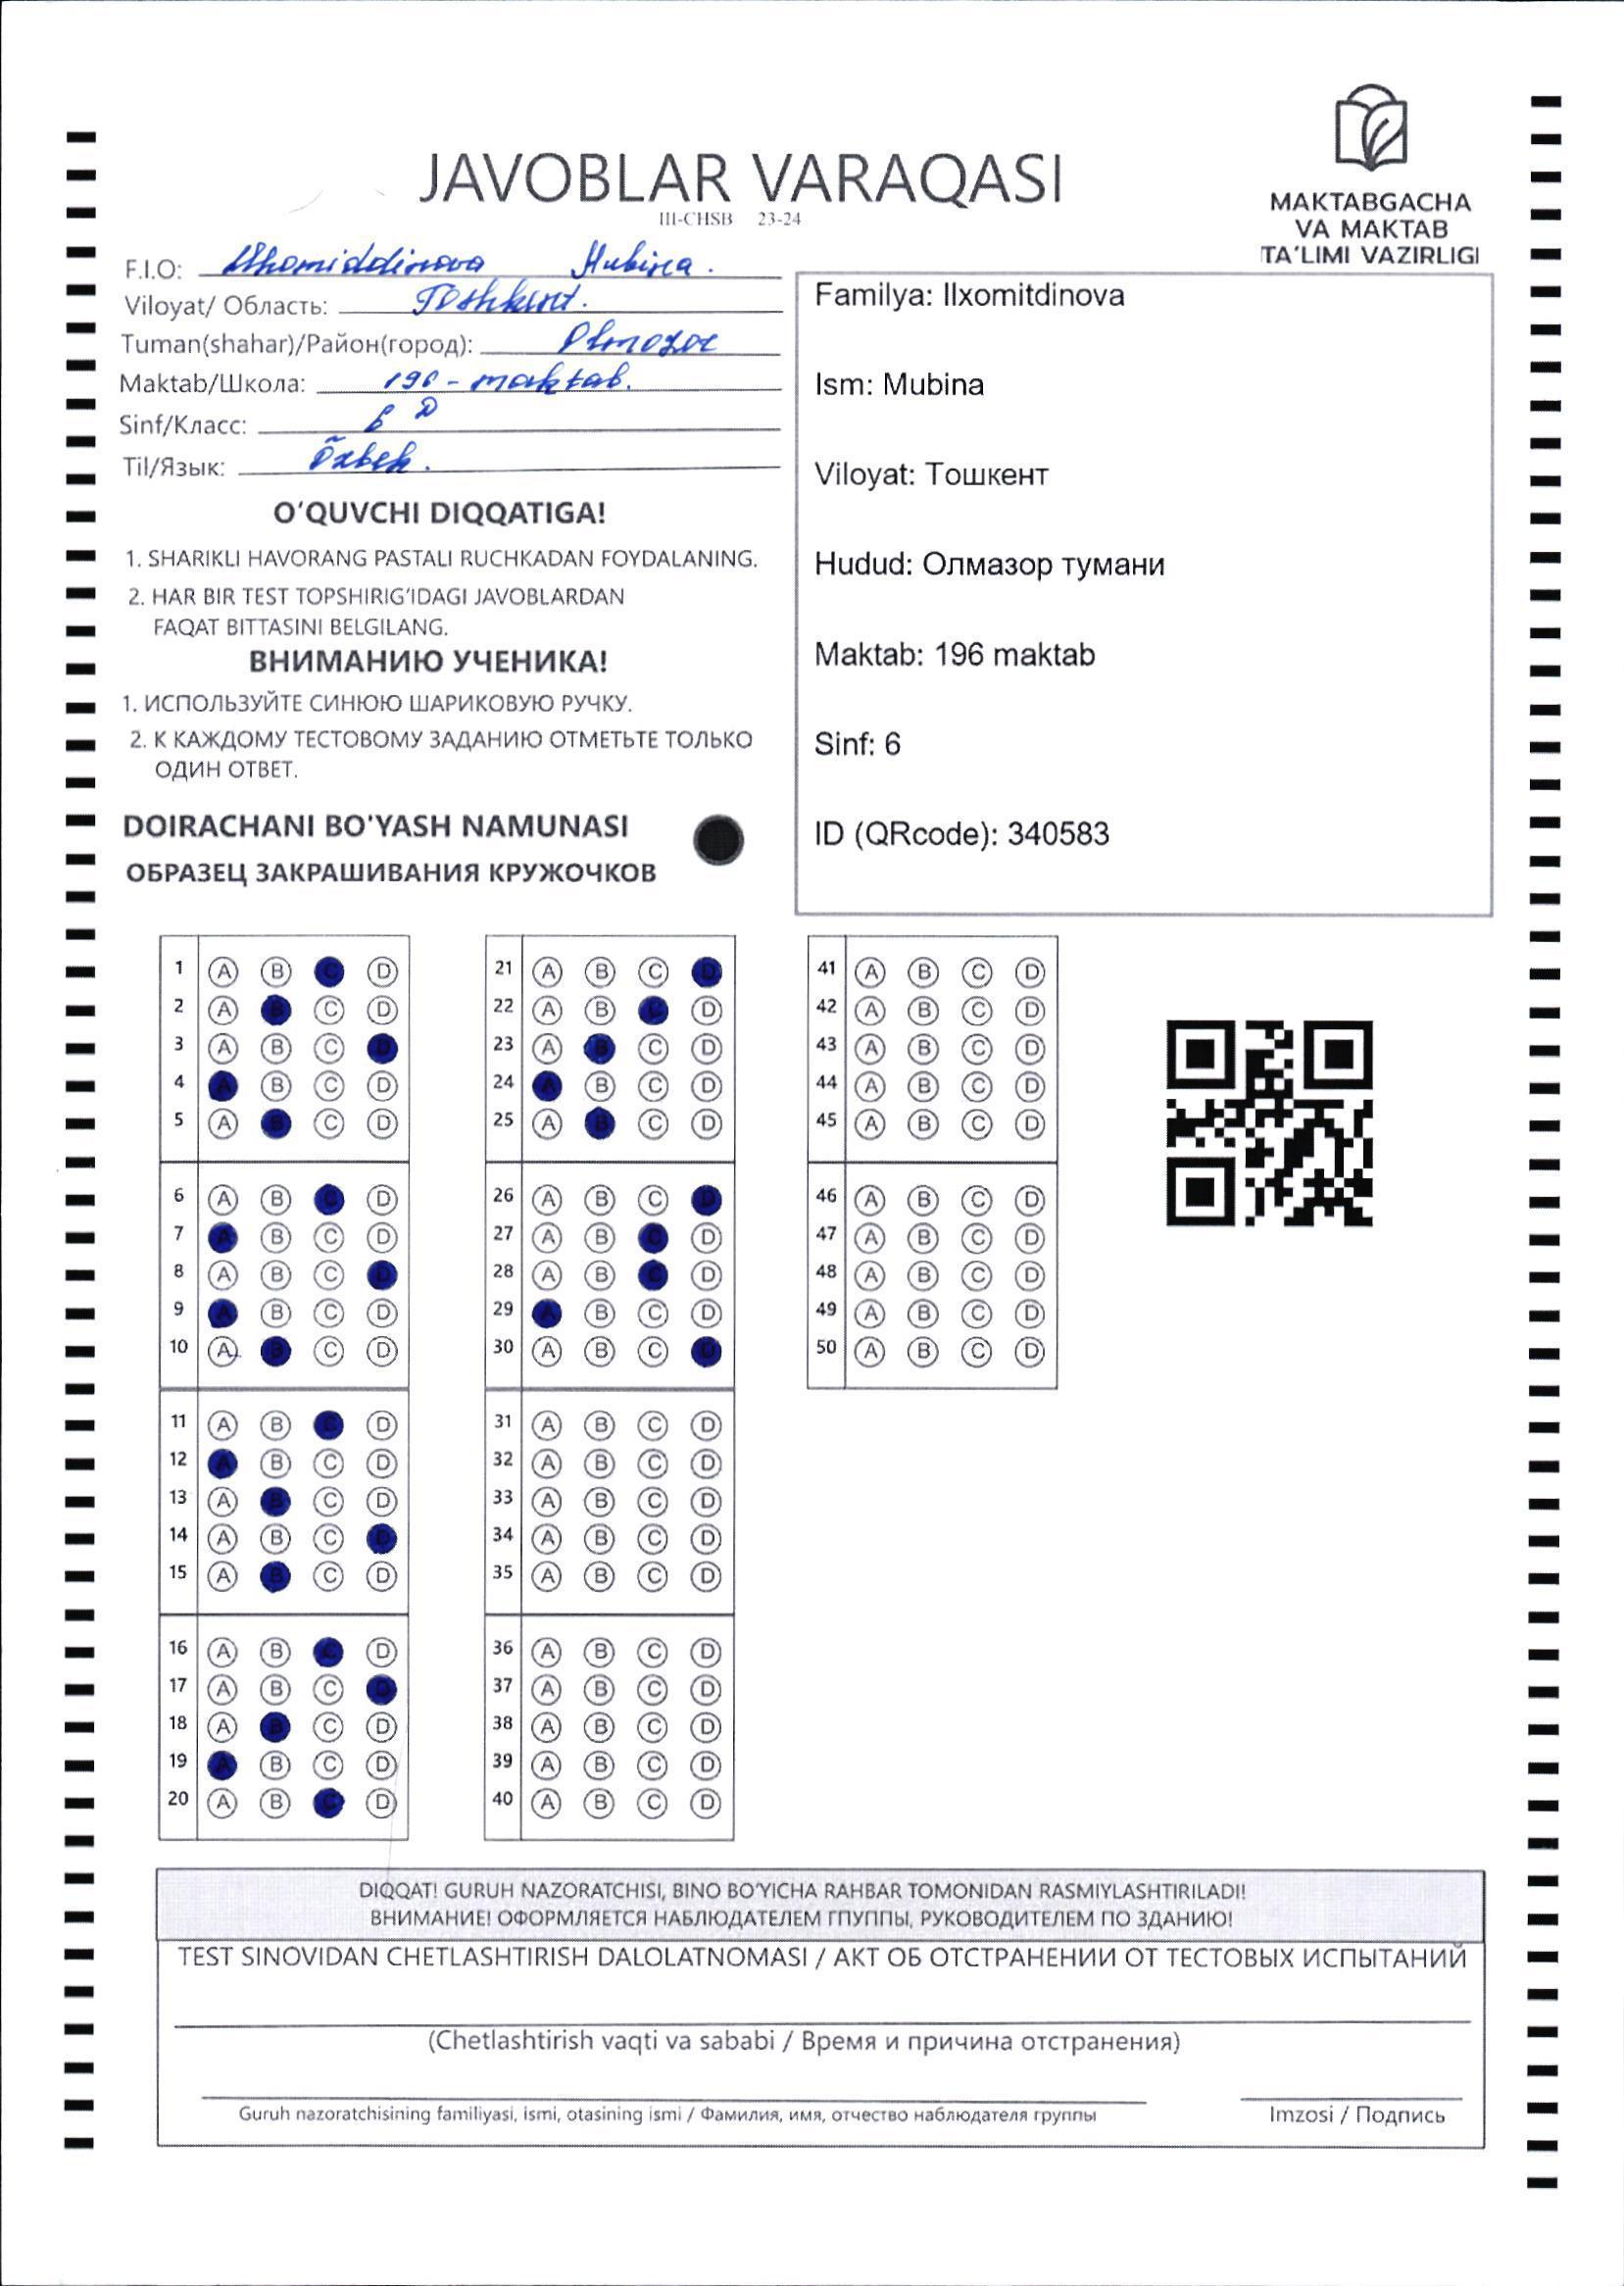 JAVOBLAR VARAQASI
III-CHSB 23-24
MAKTABGACHA
VA MAKTAB
TA'LIMI VAZIRLIGI
F.I.O: Ilhomiddinova Mubina.
Viloyat/ Область: Toshkent.
Tuman(shahar)/Район(город): Olmozor
Maktab/Школа: 196 - maktab.
Sinf/Класс: 6 D
Til/Язык: Õzbek.
O'QUVCHI DIQQATIGA!
1. SHARIKLI HAVORANG PASTALI RUCHKADAN FOYDALANING.
2. HAR BIR TEST TOPSHIRIG'IDAGI JAVOBLARDAN
FAQAT BITTASINI BELGILANG.
ВНИМАНИЮ УЧЕНИКА!
1. ИСПОЛЬЗУЙТЕ СИНЮЮ ШАРИКОВУЮ РУЧКУ.
2. К КАЖДОМУ ТЕСТОВОМУ ЗАДАНИЮ ОТМЕТЬТЕ ТОЛЬКО
ОДИН ОТВЕТ.
DOIRACHANI BO'YASH NAMUNASI
ОБРАЗЕЦ ЗАКРАШИВАНИЯ КРУЖОЧКОВ
Familya: Ilxomitdinova
Ism: Mubina
Viloyat: Тошкент
Hudud: Олмазор тумани
Maktab: 196 maktab
Sinf: 6
ID (QRcode): 340583
1 A B C D
2 A B C D
3 A B C D
4 A B C D
5 A B C D
6 A B C D
7 A B C D
8 A B C D
9 A B C D
10 A B C D
11 A B C D
12 A B C D
13 A B C D
14 A B C D
15 A B C D
16 A B C D
17 A B C D
18 A B C D
19 A B C D
20 A B C D
21 A B C D
22 A B C D
23 A B C D
24 A B C D
25 A B C D
26 A B C D
27 A B C D
28 A B C D
29 A B C D
30 A B C D
31 A B C D
32 A B C D
33 A B C D
34 A B C D
35 A B C D
36 A B C D
37 A B C D
38 A B C D
39 A B C D
40 A B C D
41 A B C D
42 A B C D
43 A B C D
44 A B C D
45 A B C D
46 A B C D
47 A B C D
48 A B C D
49 A B C D
50 A B C D
DIQQAT! GURUH NAZORATCHISI, BINO BO'YICHA RAHBAR TOMONIDAN RASMIYLASHTIRILADI!
ВНИМАНИЕ! ОФОРМЛЯЕТСЯ НАБЛЮДАТЕЛЕМ ГПУППЫ, РУКОВОДИТЕЛЕМ ПО ЗДАНИЮ!
TEST SINOVIDAN CHETLASHTIRISH DALOLATNOMASI / АКТ ОБ ОТСТРАНЕНИИ ОТ ТЕСТОВЫХ ИСПЫТАНИЙ
(Chetlashtirish vaqti va sababi / Время и причина отстранения)
Guruh nazoratchisining familiyasi, ismi, otasining ismi / Фамилия, имя, отчество наблюдателя группы
Imzosi / Подпись